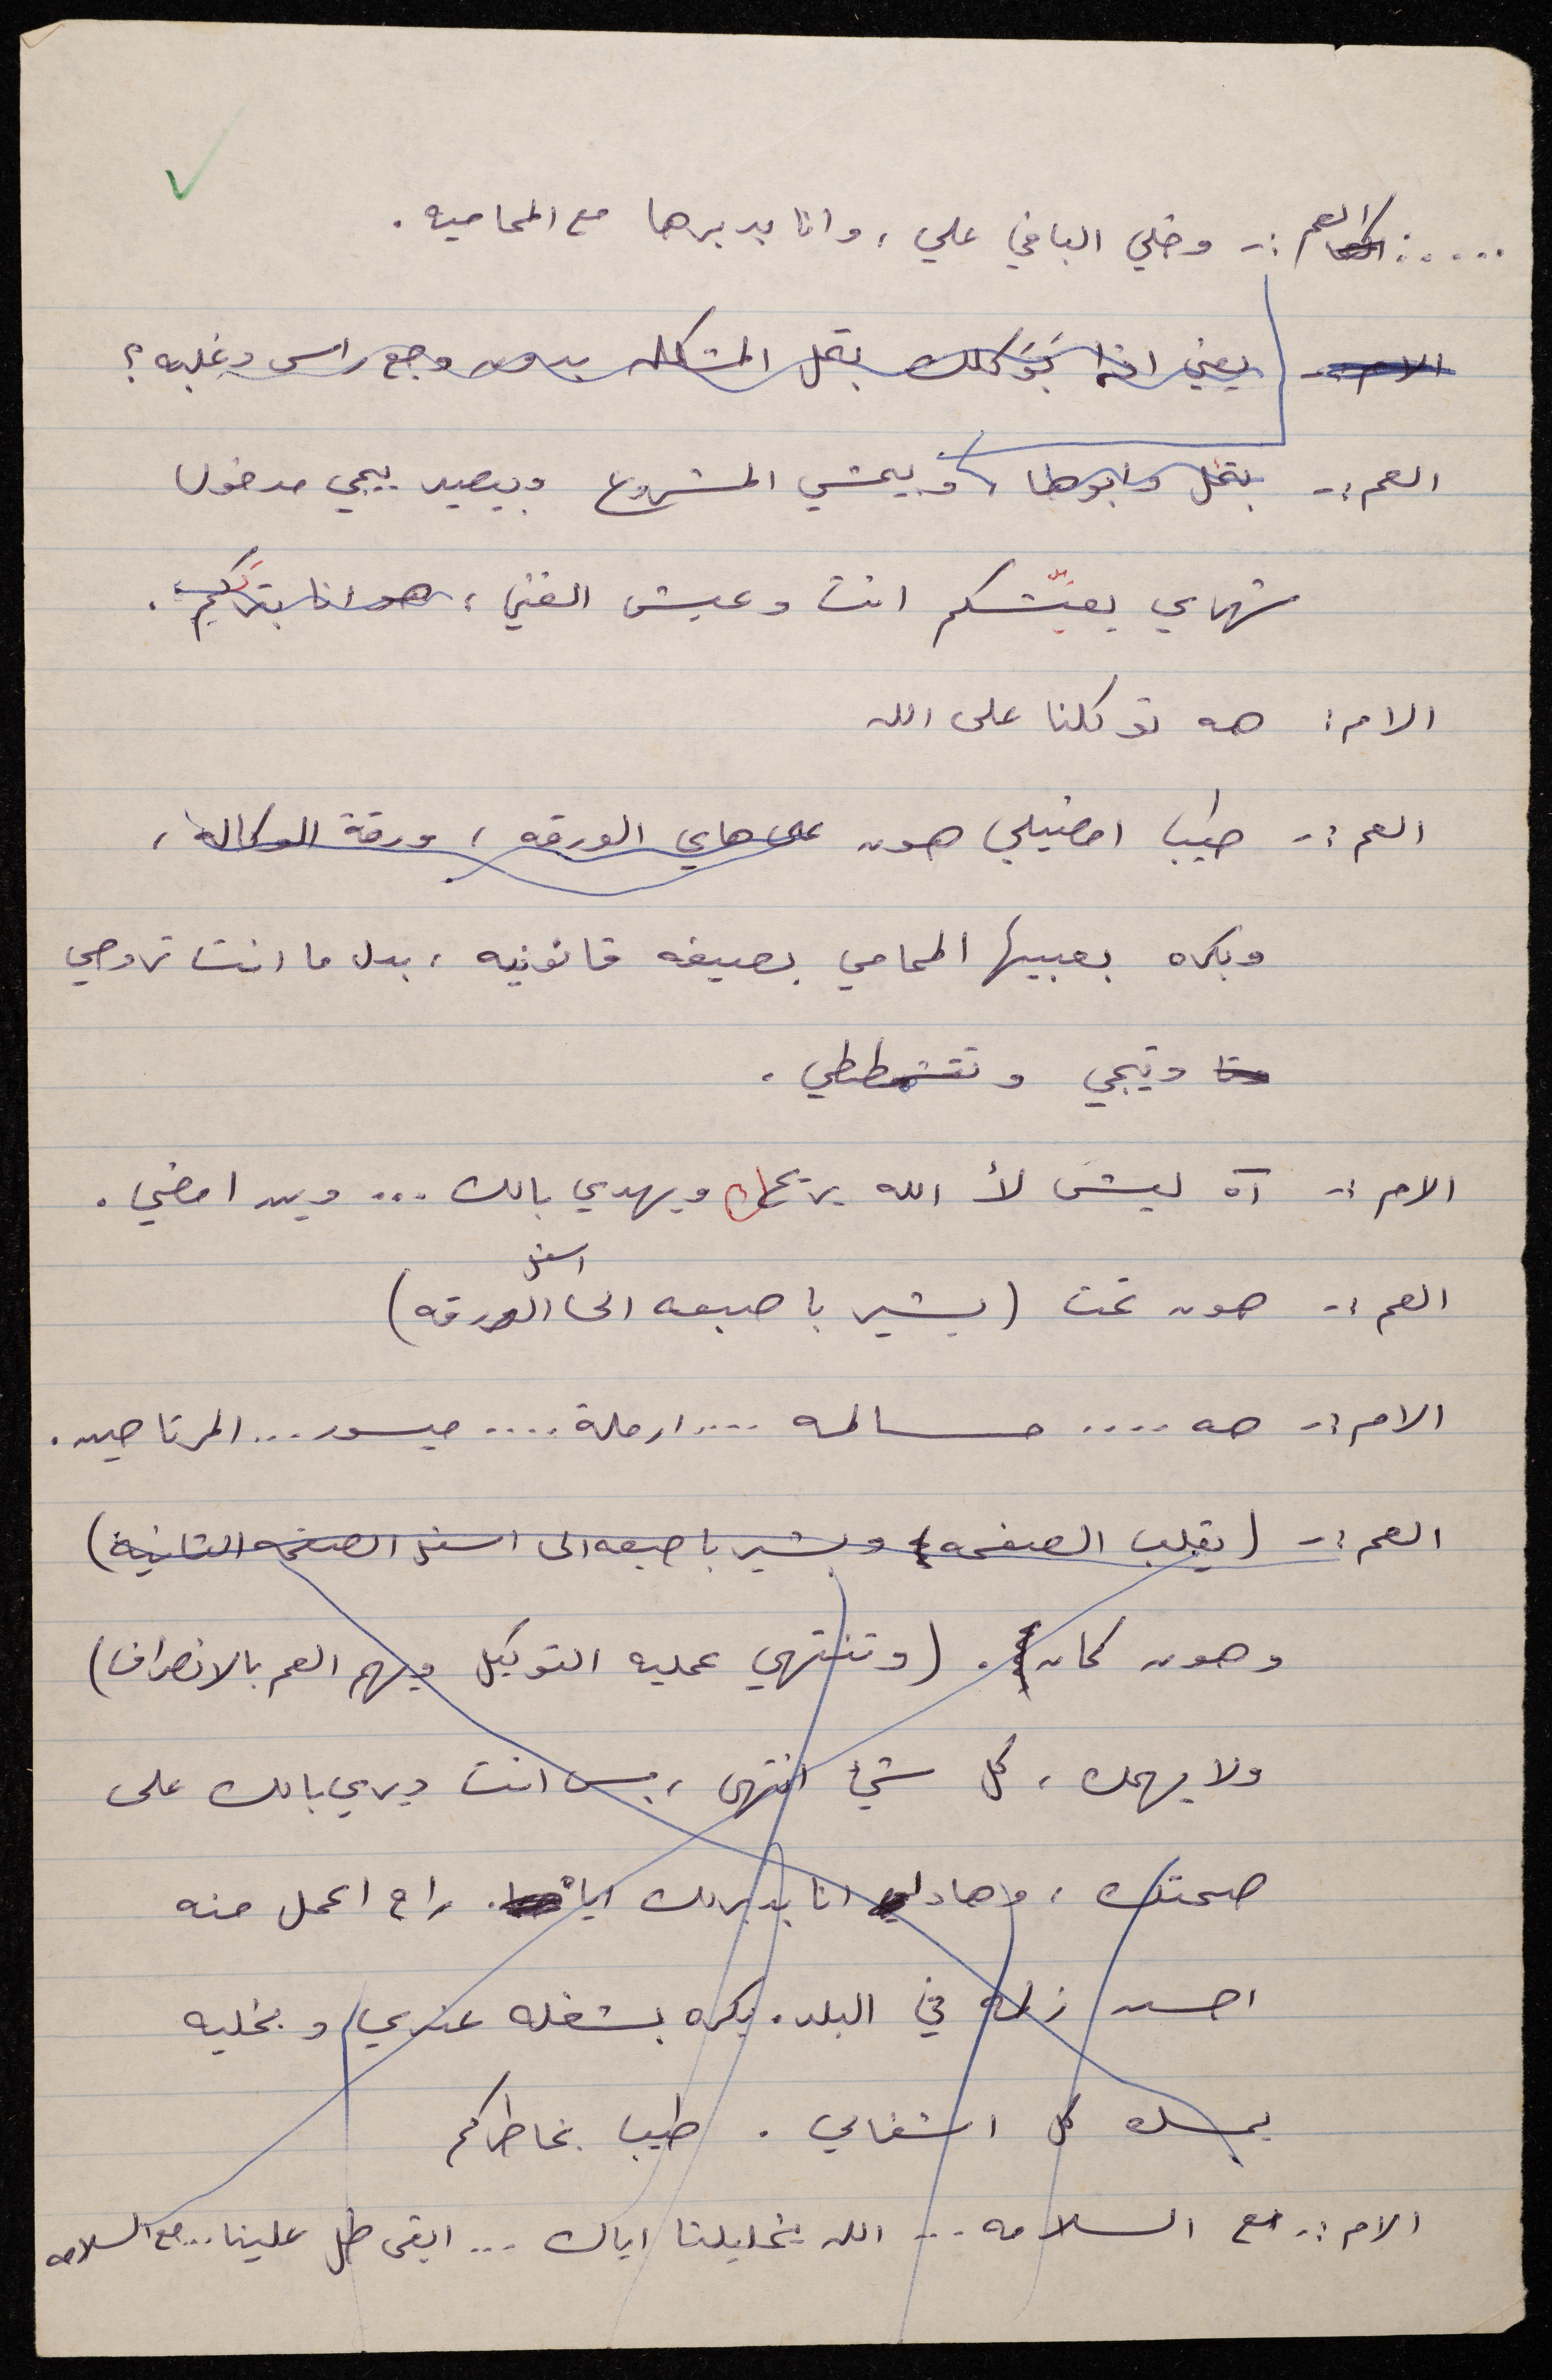 .....: العم :- وخلي الباقي علي ، وانا بدبرها مع المحاميه .
الام :- يعني اذا بَوَكلك بتحل المشكله بدون وجع راس وغلبه ؟
العم :- بتحل وابوها ، وبيمشي المشروع وبيصير ييجي مدخول
شهري يعيّشكم انت وعيش الغني ،
الام : هه توكلنا على الله
العم :- طيب امضيلي هون على هاي الورقه ، ورقة الوكاله ،
وبكره بعبيها المحامي بصيغه قانونيه ، بدل ما انت تروحي
وتيجي وتتشحططي .
الام :- آه ليش لأ الله يريحك ويهدي بالك ... وين امضي .
العم :- هون تحت (يشير باصبعه الى اسفل الورقه)
الام :- هه .... حسالمه .... ارملة .... ميسور ... المرتاحين .
العم :- (يقلب الصفحه ويشير باصبعه الى اسفل الصفحه الثانية)
وهون كمان . (وتنتهي عمليه التوكيل ويهم العم بالانصراف)
ولا يهمك ، كل شيء انتهى ، بس انت ديري بالك على
صحتك ، وهاد انا بدبرلك اياه . راح اعمل منه
احسن زلمه في البلد . بكره بشغله عندي وبخليه
يمسك كل اشغالي . طيب بخاطركم
الام :- مع السلامه ... الله يخليلنا اياك ... ابقى طل علينا ... مع السلامه